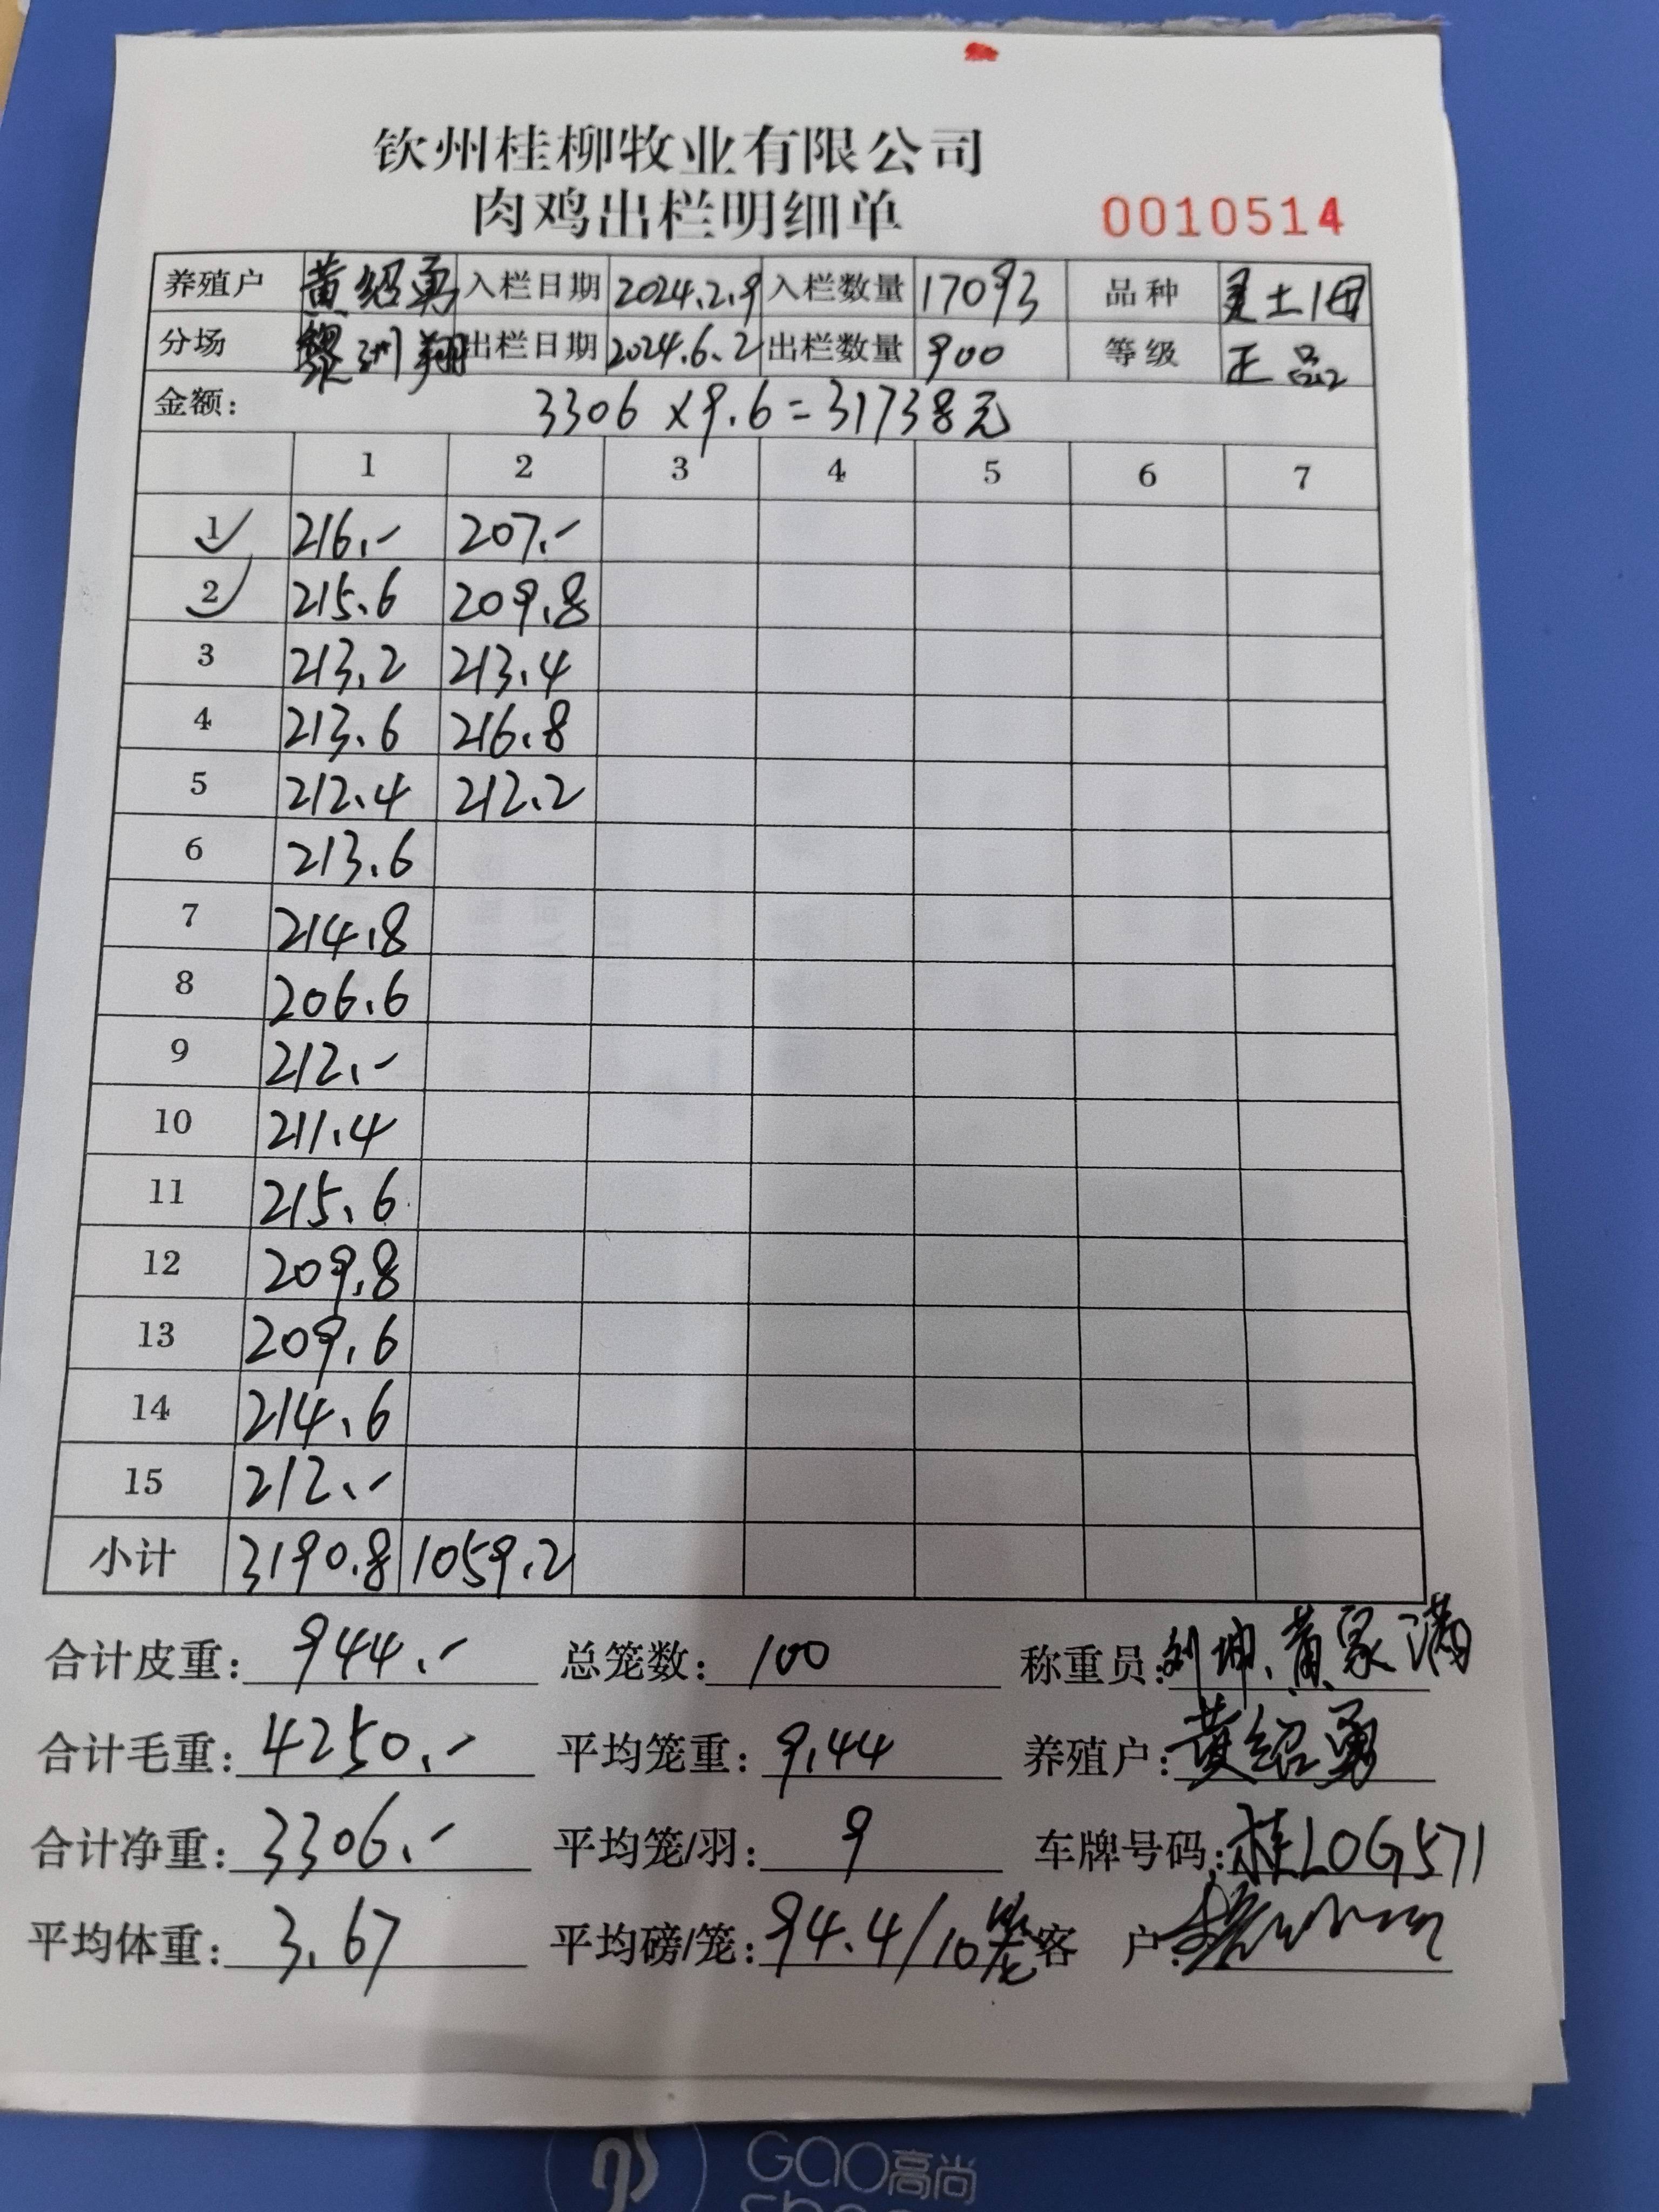 钦州桂柳牧业有限公司
肉鸡出栏明细单 0010514
养殖户 黄绍勇 入栏日期 2024.2.9 入栏数量 17093 品种 土1号
分场 黎洲翔 出栏日期 2024.6.2 出栏数量 900 等级 正品
金额: 3306×9.6=31738元
1 2 3 4 5 6 7
1 216.- 207.-
2 215.6 209.8
3 213.2 213.4
4 213.6 216.8
5 212.4 212.2
6 213.6
7 214.8
8 206.6
9 212.-
10 211.4
11 215.6
12 209.8
13 209.6
14 214.6
15 212.-
小计 3190.8 1059.2
合计皮重: 944.- 总笼数: 100 称重员: 刘坤、黄家满
合计毛重: 4250.- 平均笼重: 9.44 养殖户: 黄绍勇
合计净重: 3306.- 平均笼/羽: 9 车牌号码: 桂L0G571
平均体重: 3.67 平均磅/笼: 94.4/10笼 客 户:
GAO高尚